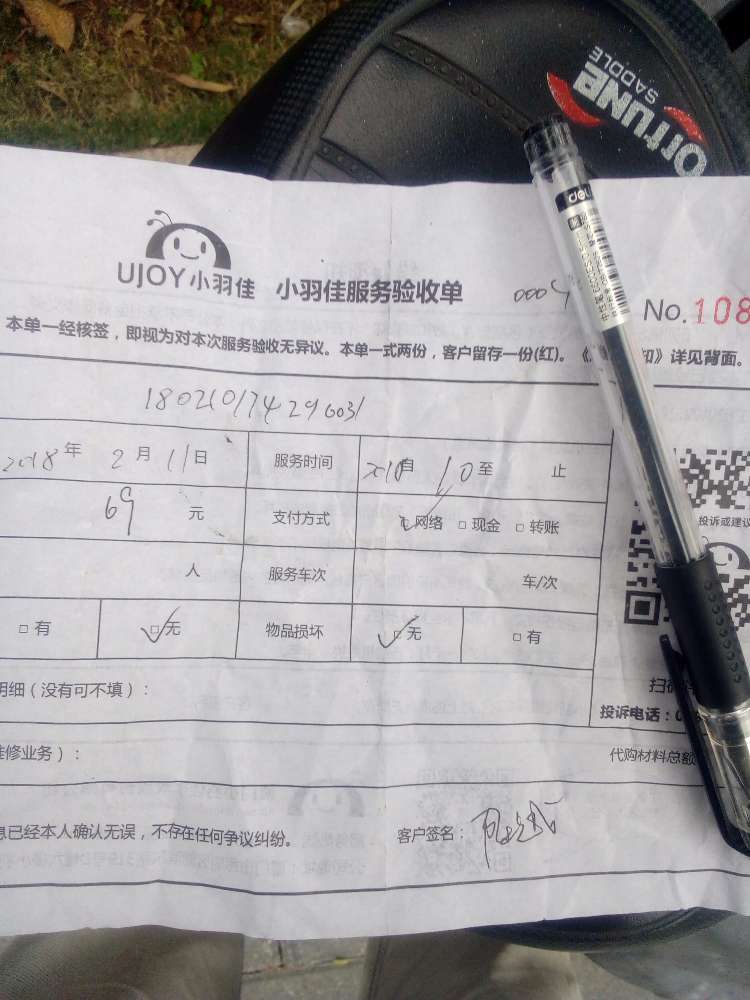 ortune
SADDLE
deli
UJOY小羽佳 小羽佳服务验收单 0004
No.108
本单一经核签，即视为对本次服务验收无异议。本单一式两份，客户留存一份(红)。《 知》详见背面。
180210174296031
2018年 2月 11日 服务时间 自 10 至 止
69 元 支付方式 网络 □ 现金 □ 转账
投诉或建议
人 服务车次 车/次
□ 有 □无 物品损坏 □无 □ 有
明细（没有可不填）：
扫
投诉电话：0
维修业务）： 代购材料总额
息已经本人确认无误，不存在任何争议纠纷。 客户签名：